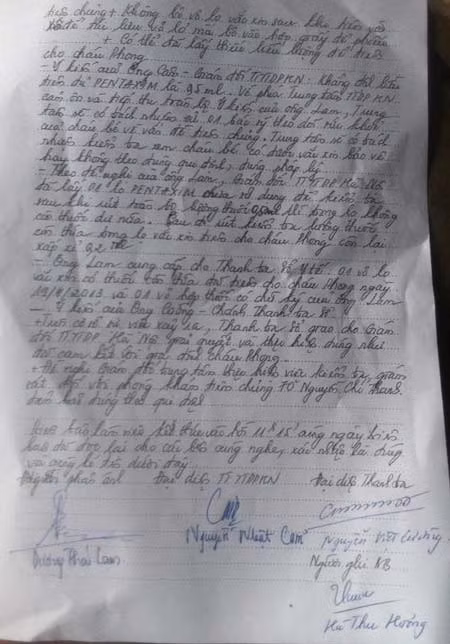 tiêm chủng + Không bỏ vỏ lọ vắc xin sau khi tiêm vào
để lưu vỏ lọ mà bỏ vào hộp giấy để
+ Có thể đã lấy thiếu liều lượng để tiêm
cho cháu Phong
- Ý kiến của Ông Cảm - Giám đốc TTYTDPKN: Khẳng định liều
tiêm đủ PENTAXIM là 0,5ml. Về phía Trung tâm TTDPKN
cảm ơn và tiếp thu ý kiến của ông Lam, Trung
tâm sẽ có trách nhiệm cử 01 bác sỹ theo dõi sức khỏe
của cháu bé về vấn đề tiêm chủng. Trung tâm sẽ có trách
nhiệm kiểm tra xem cháu bé có được vắc xin bảo vệ
hay không theo đúng qui định, đúng pháp lý.
- Theo đề nghị của ông Lam, Giám đốc TTYTDP Hà Nội
đã lấy 01 lọ PENTAXIM chưa sử dụng để kiểm tra
sau khi rút toàn bộ lượng thuốc 0,5ml thì trong lọ không
còn thuốc dư nữa. Sau đó rút kiểm tra lượng thuốc
còn thừa trong lọ vắc xin tiêm cho cháu Phong còn lại
xấp xỉ 0,2 ml
- Ông Lam cung cấp cho Thanh tra Sở Y tế 01 vỏ lọ
vắc xin có thuốc còn thừa đã tiêm cho cháu Phong ngày
19/4/2013 và 01 vỏ hộp thuốc có chữ ký của ông Lam
- Ý kiến của Ông Cường - Chánh Thanh tra Sở
+ Trên cơ sở sự việc xảy ra, Thanh tra Sở giao cho Giám
đốc TTYTDP Hà Nội giải quyết và thực hiện đúng như
đã cam kết với gia đình cháu Phong
+ Đề nghị Giám đốc trung tâm thực hiện việc kiểm tra, giám
sát đối với phòng khám tiêm chủng 70 Nguyễn Chí Thanh
đảm bảo đúng theo qui định
Buổi báo làm việc kết thúc vào hồi 11h15' cùng ngày biên
bản đã đọc lại cho các bên cùng nghe, xác nhận là đúng
và cùng ký tên dưới đây
Người phản ánh Đại diện TTYTDPKN Đại diện Thanh tra
Dương Thái Lam Nguyễn Nhật Cảm Nguyễn Việt Cường
Người ghi BB
Hà Thu Hương